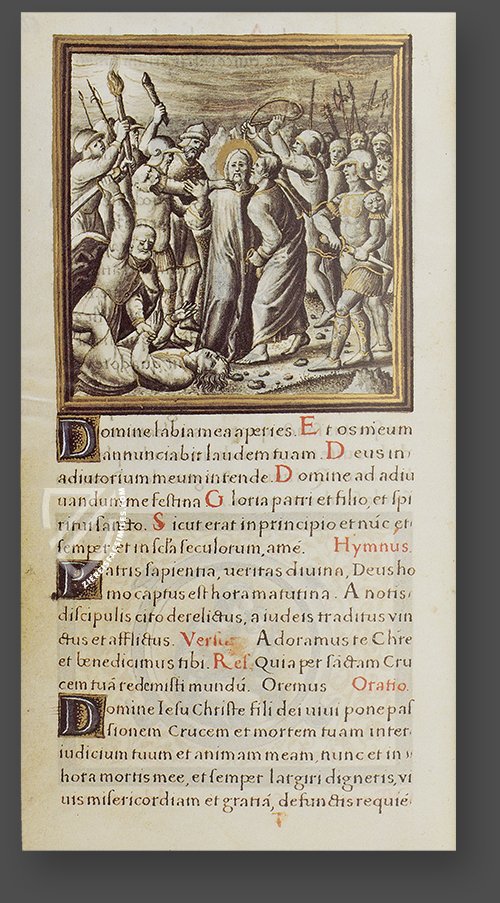 Domine labia mea aperies. Et os meum
annunciabit laudem tuam. Deus in
adiutorium meum intende. Domine ad adiu
uandum me festina Gloria patri et filio, et spi
ritui sancto. Sicut erat in principio et nūc et
semper et in sc̄la seculorum, amē. Hymnus.
Patris sapientia, ueritas diuina, Deus ho
mo captus est hora matutina. A notis
discipulis cito derelictus, a iudeis traditus vin
ctus et afflictus. Versus Adoramus te Chre
et benedicimus tibi. Res. Quia per sāctam Cru
cem tuā redemisti mundū. Oremus Oratio.
Domine Iesu Christe fili dei uiui pone pas
sionem Crucem et mortem tuam inter
iudicium tuum et animam meam, nunc et in
hora mortis mee, et semper largiri digneris, vi
uis misericordiam et gratiā, defunctis requiē
ZIEREIS FACSIMILES.COM